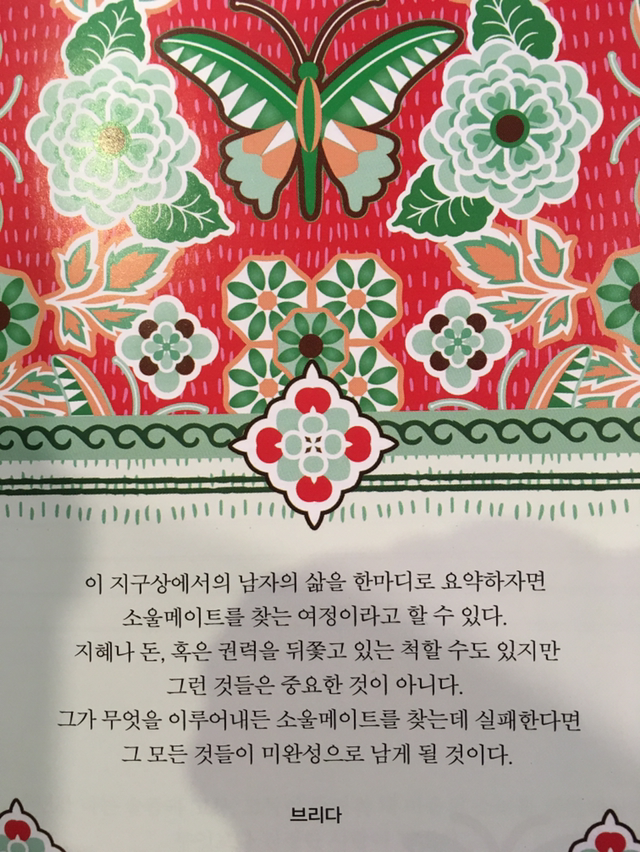 이 지구상에서의 남자의 삶을 한마디로 요약하자면
소울메이트를 찾는 여정이라고 할 수 있다.
지혜나 돈, 혹은 권력을 뒤쫓고 있는 척할 수도 있지만
그런 것들은 중요한 것이 아니다.
그가 무엇을 이루어내든 소울메이트를 찾는데 실패한다면
그 모든 것들이 미완성으로 남게 될 것이다.
브리다